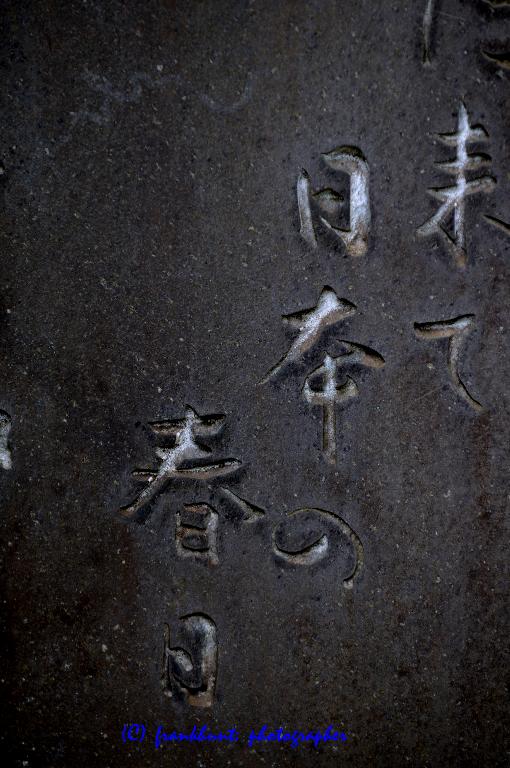 来て
日本の
春日
(C) frankhunt, photographer